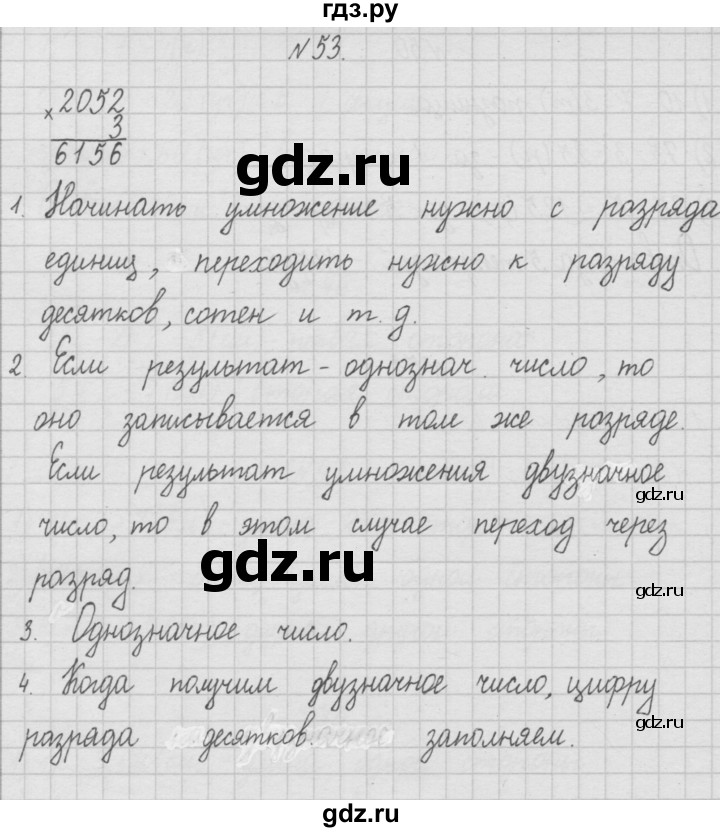 гдз.ру
N 53.
× 2052
3
6156
gdz.ru
1. Начинать умножение нужно с разряда
единиц, переходить нужно к разряду
gdz.ru
десятков, сотен и т. д.
2. Если результат - однознач. число, то
gdz.ru
оно записывается в том же разряде.
Если результат умножения двузначное
gdz.ru
число, то в этом случае переход через
gdz.ru
разряд.
gdz.ru
3. Однозначное число.
4. Когда получим двузначное число, цифру
gdz.ru
разряда десятков заполняем.
gdz.ru